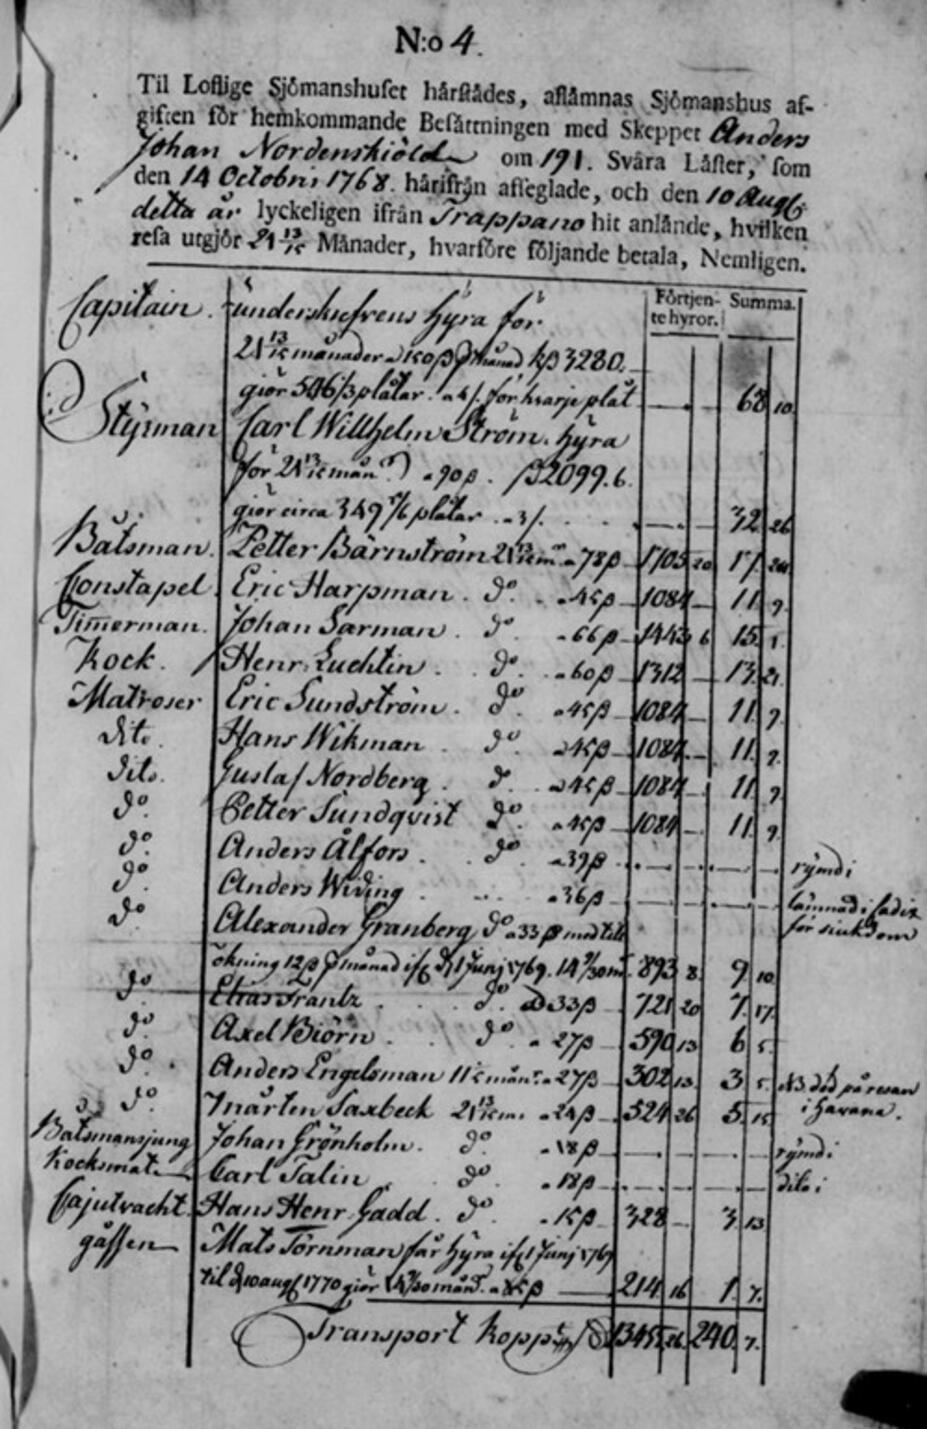 N:o 4.
Til Loflige Sjömanshuset härstådes, aflämnas Sjömanshus af-
giften för hemkommande Besättningen med Skeppet Anders
Johan Nordenskiöld om 191. Svåra Läster, som
den 14 Octobris 1768. härifrån afseglade, och den 10 Aug
detta år lyckeligen ifrån Trappano hit anlände, hvilken
resa utgjör 21 13/15 Månader, hvarföre följande betala, Nemligen.
Förtjen- Summa.
te hyror.
Capitain. underskrefvens hyra för
21 13/15 månader a 150 månad 3280.
giör 546 2/3 plåtar a 4 för hvarje plåt 68 10.
Styrman Carl Willhelm Ström. hyra
för 21 13/15 mån a 90 2099. 6.
giör circa 349 5/6 plåtar a 3 32 26
Båtsman. Petter Bärnström 21 13/15 m a 78 1705 20 17.
Constapel. Eric Harpman. do. a 45 1084 11 9.
Timmerman. Johan Sarman. do. a 66 1443 6 15. 1.
Kock. Henr. Luchtin. do a 60 1312 13. 21.
Matroser Eric Sundström. do a 45 1084 11. 9.
dito. Hans Wikman. do. a 45 1084 11. 9.
dito. Gustaf Nordberg. do. a 45 1084 11 9
do. Petter Sundqvist do a 45 1084 11. 9.
do. Anders Ålfors. do. a 39 rymdi
do. Anders Widing a 36 lämnad i Cadix
do. Alexander Granberg do a 33 med till för siukdom
ökning 12 månad if d 1 Junj 1769. 14 9/30 m. 893 8. 9 10.
do. Elias Frantz do a 33 721 20 7. 17.
do. Axel Biörn. do. a 27 590 13 6 5.
do. Anders Engelsman 11 månr. a 27 302 13. 3 5. NB död på resan
do. Mårten Saxbeck 21 13/15 m. a 24 524 26 5. 15. i Havana.
Båtsmansjung Johan Grönholm. do. a 18 rymdi
Kocksmat. Carl Talin do a 18 dito i
Cajutvacht. Hans Henr. Gadd. do. a 15 328 3. 13
gåssen Mats Törnman får hyra if 1 Junj 1769
til d 10 aug 1770 giör 14 9/30 månd. a 15 214 16 1. 7.
Transport Koppmt 240. 7.